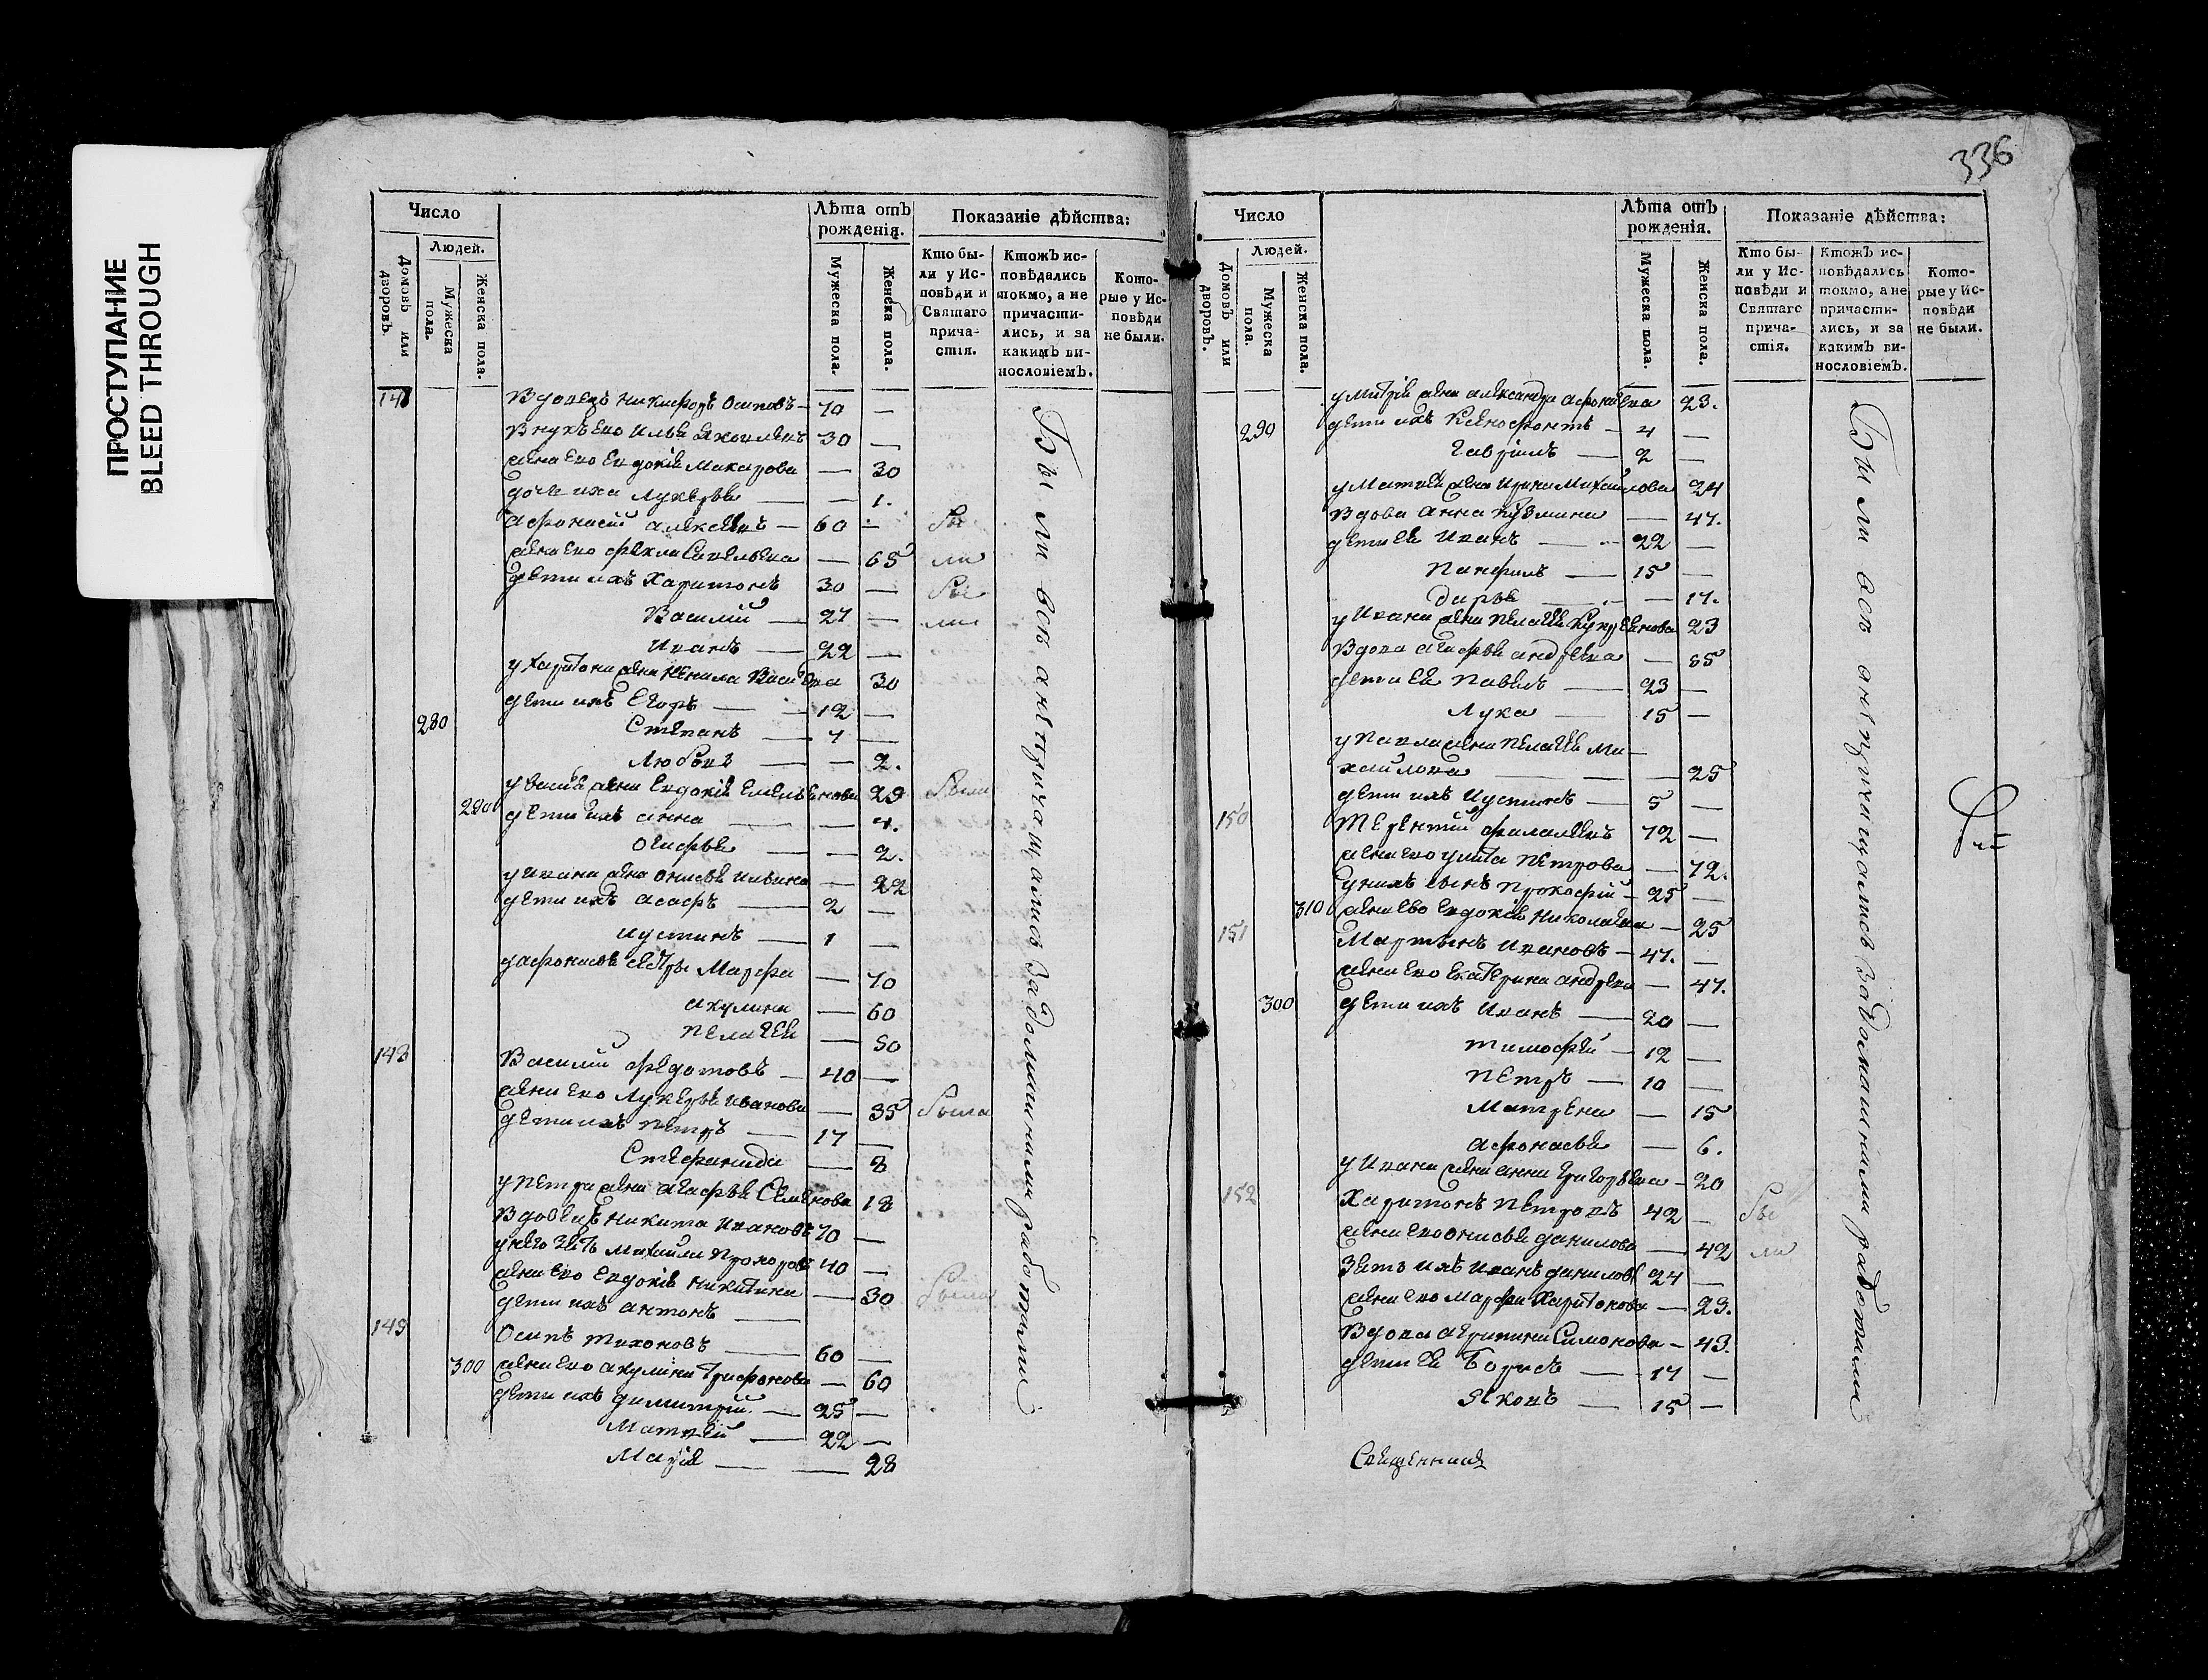 ПРОСТУПАНИЕ
BLEED THROUGH
Число
Людей.
Домовъ или дворовъ.
Мужеска пола.
Женска пола.
Лѣта отъ рожденія.
Мужеска пола.
Женска пола.
Показаніе дѣйства:
Кто были у Исповѣди и Святаго причастія.
Ктожъ исповѣдались токмо, а не причастились, и за какимъ винословіемъ.
Которые у Исповѣди не были.
Вдовецъ Никифоръ Осиповъ — 70 —
Внукъ Ево Илья Яковлевъ 30 —
жена Ево Евдокія Макарова — 30
дочь ихъ Лукерья — — 1.
Афонасій Алексѣевъ — 60 — Бы
жена Ево Фекла Савельева — 65 ли
дети ихъ Харитонъ 30 — Бы
Василій — 27 — ли
Иванъ — 22 —
у Харитона жена Василева 30
дети ихъ Егоръ — 12 —
280 Степанъ — 4 —
Любовь — — 2.
у Василья жена Евдокія Емельянова 29 Были
290 дети ихъ Анна — — 4.
Огафья — — 2.
у Ивана жена Онисья Ильина — 22
дети ихъ Асафъ — 2 —
Иустинъ — 1 —
у Афонасья сестры Марфа — 70
Акулина — 60
Пелагея — 50
148 Василий Федотовъ — 40 —
жена Ево Лукерья Иванова — 35 Была
дети ихъ Петръ — 17 —
Стефанида — 8
у Петра жена Агафья Семенова 18
Вдовецъ Никита Ивановъ 70 —
у него зять Михаила Прохоровъ 40 —
жена Ево Евдокія Никитина — 30 Были
дети ихъ Антонъ —
149 Осипъ Тихоновъ — 60 —
300 жена Ево Акулина Трифонова — 60
дети ихъ Димитрий — 25 —
Матвей — 22 —
Марія — — 28
Были всѣ а не причащались за домашними работами
336
Число
Людей.
Домовъ или дворовъ.
Мужеска пола.
Женска пола.
Лѣта отъ рожденія.
Мужеска пола.
Женска пола.
Показаніе дѣйства:
Кто были у Исповѣди и Святаго причастія.
Ктожъ исповѣдались токмо, а не причастились, и за какимъ винословіемъ.
Которые у Исповѣди не были.
у Митрія жена Александра Афонасева 23.
290 дети ихъ Ксенофонтъ — 4 —
Гаврiилъ — 2 —
у Матвея жена Ирина Михаилова 24
Вдова Анна Кузмина — 47.
дети ея Иванъ — 22 —
Панфилъ — 15 —
Дарья — — 17.
у Ивана жена Пелагея 23
Вдова Агафья Андреева — 55
дети ея Павелъ — 23 —
Лука — 15 —
у Павла жена Пелагея Ми-
хаилова — — 25
дети ихъ Иустинъ — 5 —
150 Терентий Фалалеевъ 72 —
жена ево Улита Петрова — 72.
у нихъ сынъ Прокофій — 25 —
310 жена Ево Евдокія Николаева — 25
151 Мартынъ Ивановъ — 47. —
жена Ево Екатерина Андреева — 47.
300 дети ихъ Иванъ — 20 —
Тимофей — 12 —
Петръ — 10 —
Матрена — 15
Афонасья — 6.
у Ивана жена Анна Григорьева — 20
152 Харитонъ Петровъ 42 — Бы
жена Ево Онисья Данилова — 42 ли
Зять ихъ Иванъ Даниловъ 24 —
жена Ево Марфа Харитонова — 23.
Вдова Агрипина Симонова — 43.
дети ея Борисъ — 17 —
Яковъ — 15 —
Были всѣ а не причащались за домашними работами
Священникъ